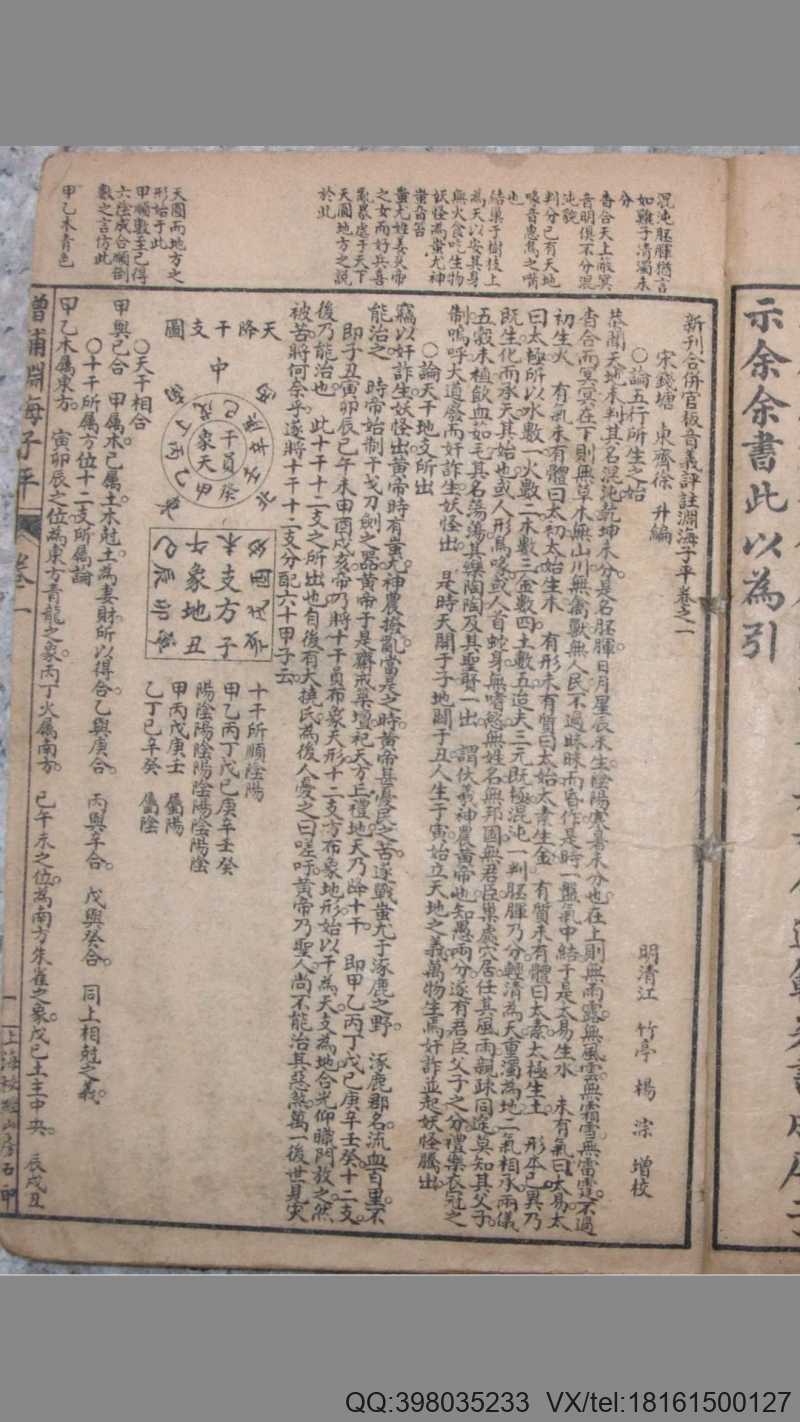 示余余書此以為引
新刊合併官板音義評註淵海子平卷之一
宋錢塘 東齋徐 升編
明清江 竹亭 楊 淙 增校
○論五行所生之始
恭聞天地未判其名混沌乾坤未分是名胚腪日月星辰未生陰陽寒暑未分也在上則無雨露無風雲無霜雪無雷霆不過
杳合而冥冥在下則無草木無山川無禽獸無人民不過昧昧而昏作是時一盤氣中結于是太易生水 未有氣曰太易太
初生火 有氣未有體曰太初太始生木 有形未有質曰太始太素生金 有質未有體曰太素太極生土 形体已具乃
曰太極所以水數一火數二木數三金數四土數五迨夫三元既極混沌一判胚腪乃分輕清為天重濁為地二氣相承兩儀
既生化而承天其始也或人形鳥喙或人首蛇身無嗜慾無姓名無邦國無君臣巢處穴居任其風雨親疎同途莫知其父子
五穀未植飲血茹毛其名蕩蕩其樂陶陶及其聖賢一出 謂伏羲神農黃帝也知愚兩分遂有君臣父子之分禮樂衣冠之
制嗚呼大道廢而奸詐生妖怪出 是時天開于子地闢于丑人生于寅始立天地之義萬物生焉奸詐並起妖怪騰出
○論天干地支所出
竊以奸詐生妖怪出黃帝時有蚩尤神農擾亂當是之時黃帝甚憂民之苦遂戰蚩尤于涿鹿之野 涿鹿郡名流血百里不
能治之 時帝始制干戈刀劍之器黃帝于是齋戒築壇祀天方丘禮地天乃降十干 即甲乙丙丁戊己庚辛壬癸十二支
即子丑寅卯辰巳午未申酉戌亥帝乃將十干員布象天形十二支方布象地形始以干為天支為地合光仰職門放之然
後乃能治也 此十干十二支之所出也自後有大撓氏為後人憂之曰嗟吁黃帝乃聖人尚不能治其惡煞萬一後世見災
被苦將何奈乎遂將十干十二支分配六十甲子云
天降干支圖
中
干員
象天
支方
象地
十干所順陰陽
甲乙丙丁戊己庚辛壬癸
陽陰陽陰陽陰陽陰陽陰
甲丙戊庚壬 屬陽
乙丁己辛癸 屬陰
○天干相合
甲與己合 甲屬木己屬土木尅土為妻財所以得合乙與庚合 丙與辛合 戊與癸合 同上相尅之義
○十干所屬方位十二支所屬論
甲乙木屬東方 寅卯辰之位為東方青龍之象丙丁火屬南方 巳午未之位為南方朱雀之象戊己土主中央 辰戌丑
增補淵海子平 卷一 一 上海校經山房石印
混沌胚腪猶言
如雞子清濁未
分
杳合天上敝冥
音明俱不分混
沌貌
判分已有天地
喙音惠鳥之嘴
也
結巢于樹枝上
為天以安其身
無火食吃生物
妖怪為蚩尤神
蚩音笞
蚩尤姓姜炎帝
之女而好兵喜
亂暴虐于天下
天圓地方之説
於此
天圓而地方之
形始于此
甲順數至己得
六陰成合順倒
數之言仿此
甲乙木青色
QQ:398035233 VX/tel:18161500127